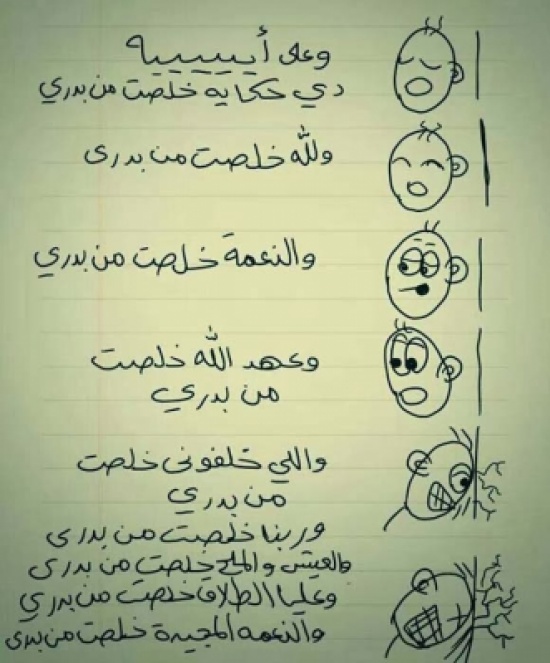 وعلى أييييييه
دي حكايه خلصت من بدري
ولله خلصت من بدرى
والنعمة خلصت من بدري
وعهد الله خلصت
من بدري
واللي خلفونى خلصت
من بدري
وربنا خلصت من بدرى
والعيش والملح خلصت من بدرى
وعليا الطلاق خلصت من بدري
والنعمه المجيدة خلصت من بدرى